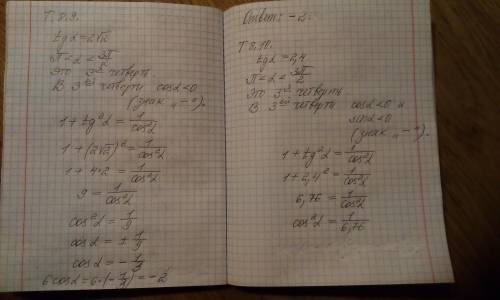 Т.8.9.
tgα=2√2
π<α<3π/2
Это 3ᵃ четверть
В 3ᵉᵘ четверти cosα<0
(знак „−").
1+tg²α=1/cos²α
1+(2√2)²=1/cos²α
1+4·2=1/cos²α
9=1/cos²α
cos²α=1/9
cosα=±1/9
cosα=−1/3
6cosα=6·(−1/3)=−2
Ответ: −2.
Т.8.10.
tgα=2,4
π<α<3π/2
Это 3ᵃ четверть
В 3ᵉᵘ четверти cosα<0 и
sinα<0
(знак „−")
1+tg²α=1/cos²α
1+2,4²=1/cos²α
6,76=1/cos²α
cos²α=1/6,76